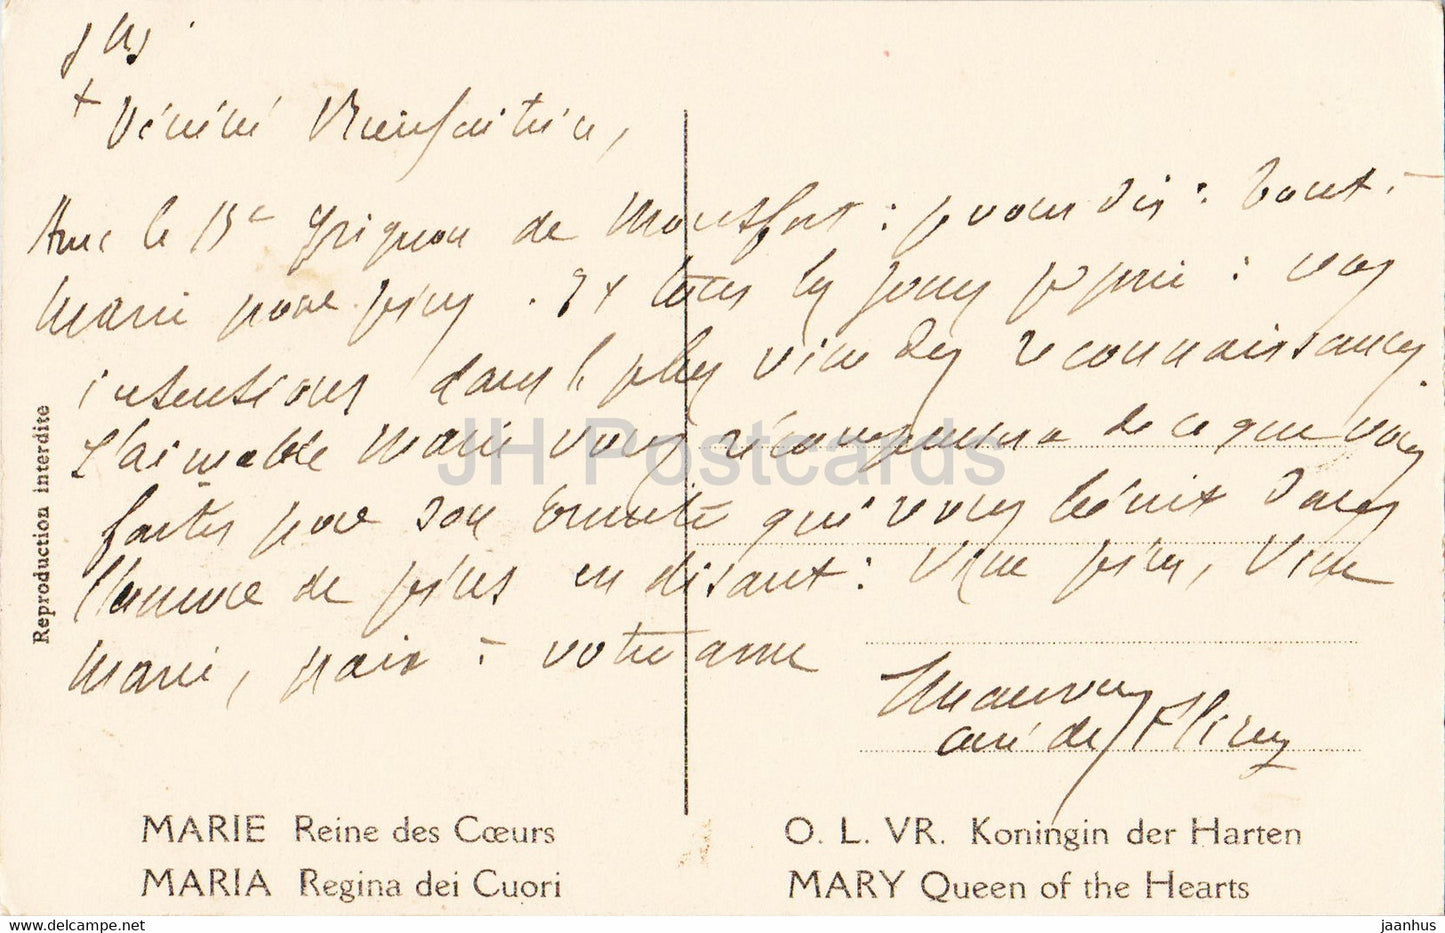 JHS
+ Vénéré Bienfaitrice,
Avec le Bx Grignon de Montfort : je vous dis : Tout à
Marie pour Jésus. Et tous les jours je prie : vos
intentions dans la plus vive des reconnaissances.
L'aimable Marie vous récompensera de ce que vous
faites pour son qui vous bénit dans
l'amour de Jésus en disant : Vive Jésus, Vive
Marie, paix à votre âme
curé de
Reproduction interdite
JH Postcards
MARIE Reine des Cœurs
MARIA Regina dei Cuori
O. L. VR. Koningin der Harten
MARY Queen of the Hearts
www.delcampe.net
jaanhus